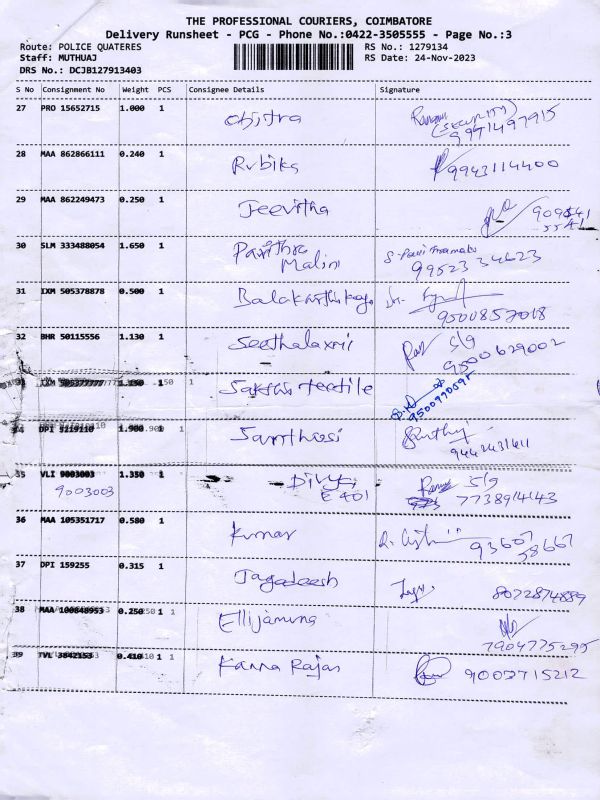 THE PROFESSIONAL COURIERS, COIMBATORE
Delivery Runsheet - PCG - Phone No.:0422-3505555 - Page No.:3
Route: POLICE QUATERES RS No.: 1279134
Staff: MUTHUAJ RS Date: 24-Nov-2023
DRS No.: DCJB127913403
S No Consignment No Weight PCS Consignee Details Signature
27 PRO 15652715 1.000 1 Obijtra (Security) 9971497915
28 MAA 862866111 0.240 1 Rubika 9943114400
29 MAA 862249473 0.250 1 Jeevitha
30 SLM 333488054 1.650 1 Pavithra
Malini 99523 34623
31 IXM 505378878 0.500 1 9500857018
32 BHR 50115556 1.130 1 Seethalaxmi S/g
9500629002
1 textile 9500970595
DPI 1.900 1 Santhosi 9442431411
35 VLI 9003003 1.350 1 Divya S/g
9003003 E 401 7738914143
36 MAA 105351717 0.580 1 Kumar 93607
58667
37 DPI 159255 0.315 1 Jagadeesh 8072874889
38 MAA 0.250 1 Ellijamuna
7904775295
39 TVL 3842153 0.410 1 Kanna Rajan 9003715212